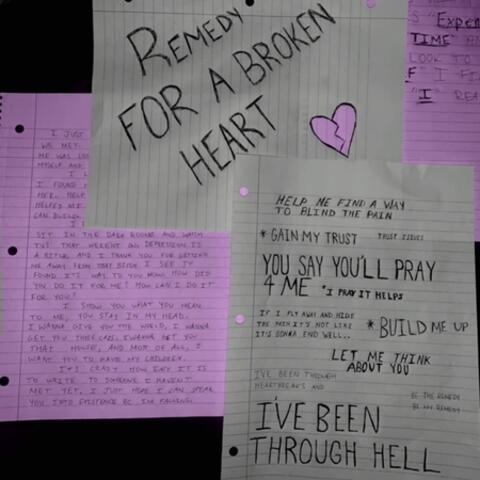 REMEDY
FOR A BROKEN
HEART
"EXPER
TIME"
LOOK TO
F" I FI
"I" REA
I JUST
WE MET.
ME WAS LO
MYSELF AND
I L
I FOUND
HER. HELP
HELPS ME
CAN BUILD
I
SIT IN THE DARK ROOMS AND WATCH
THAT WEREN'T ON. DEPRESSION IS
A BITCH AND I THANK YOU FOR GETTING
ME AWAY FROM THAT BITCH. I SEE IT
FOUND IT'S WAY TO YOU NOW. HOW DID
YOU DO IT FOR ME? HOW CAN I DO IT
FOR YOU?
I SHOW YOU WHAT YOU MEAN
TO ME, YOU STAY IN MY HEAD.
I WANNA GIVE YOU THE WORLD, I WANNA
GET YOU THOSE CARS, I WANNA GET YOU
THAT HOUSE, AND MOST OF ALL, I
WANT YOU TO HAVE MY CHILDREN.
IT'S CRAZY HOW EASY IT IS
TO WRITE TO SOMEONE I HAVEN'T
MET YET, I JUST HOPE I CAN SPEAK
YOU INTO EXISTENCE BC IM FALLING
HELP ME FIND A WAY
TO BLIND THE PAIN
* GAIN MY TRUST TRUST ISSUES
YOU SAY YOU'LL PRAY
4 ME *I PRAY IT HELPS
IF I FLY AWAY AND HIDE
THE PAIN IT'S NOT LIKE
IT'S GONNA END WELL..
* BUILD ME UP
LET ME THINK
ABOUT YOU
I'VE BEEN THROUGH
HEARTBREAKS AND
BE THE REMEDY
BE MY REMEDY
I'VE BEEN
THROUGH HELL